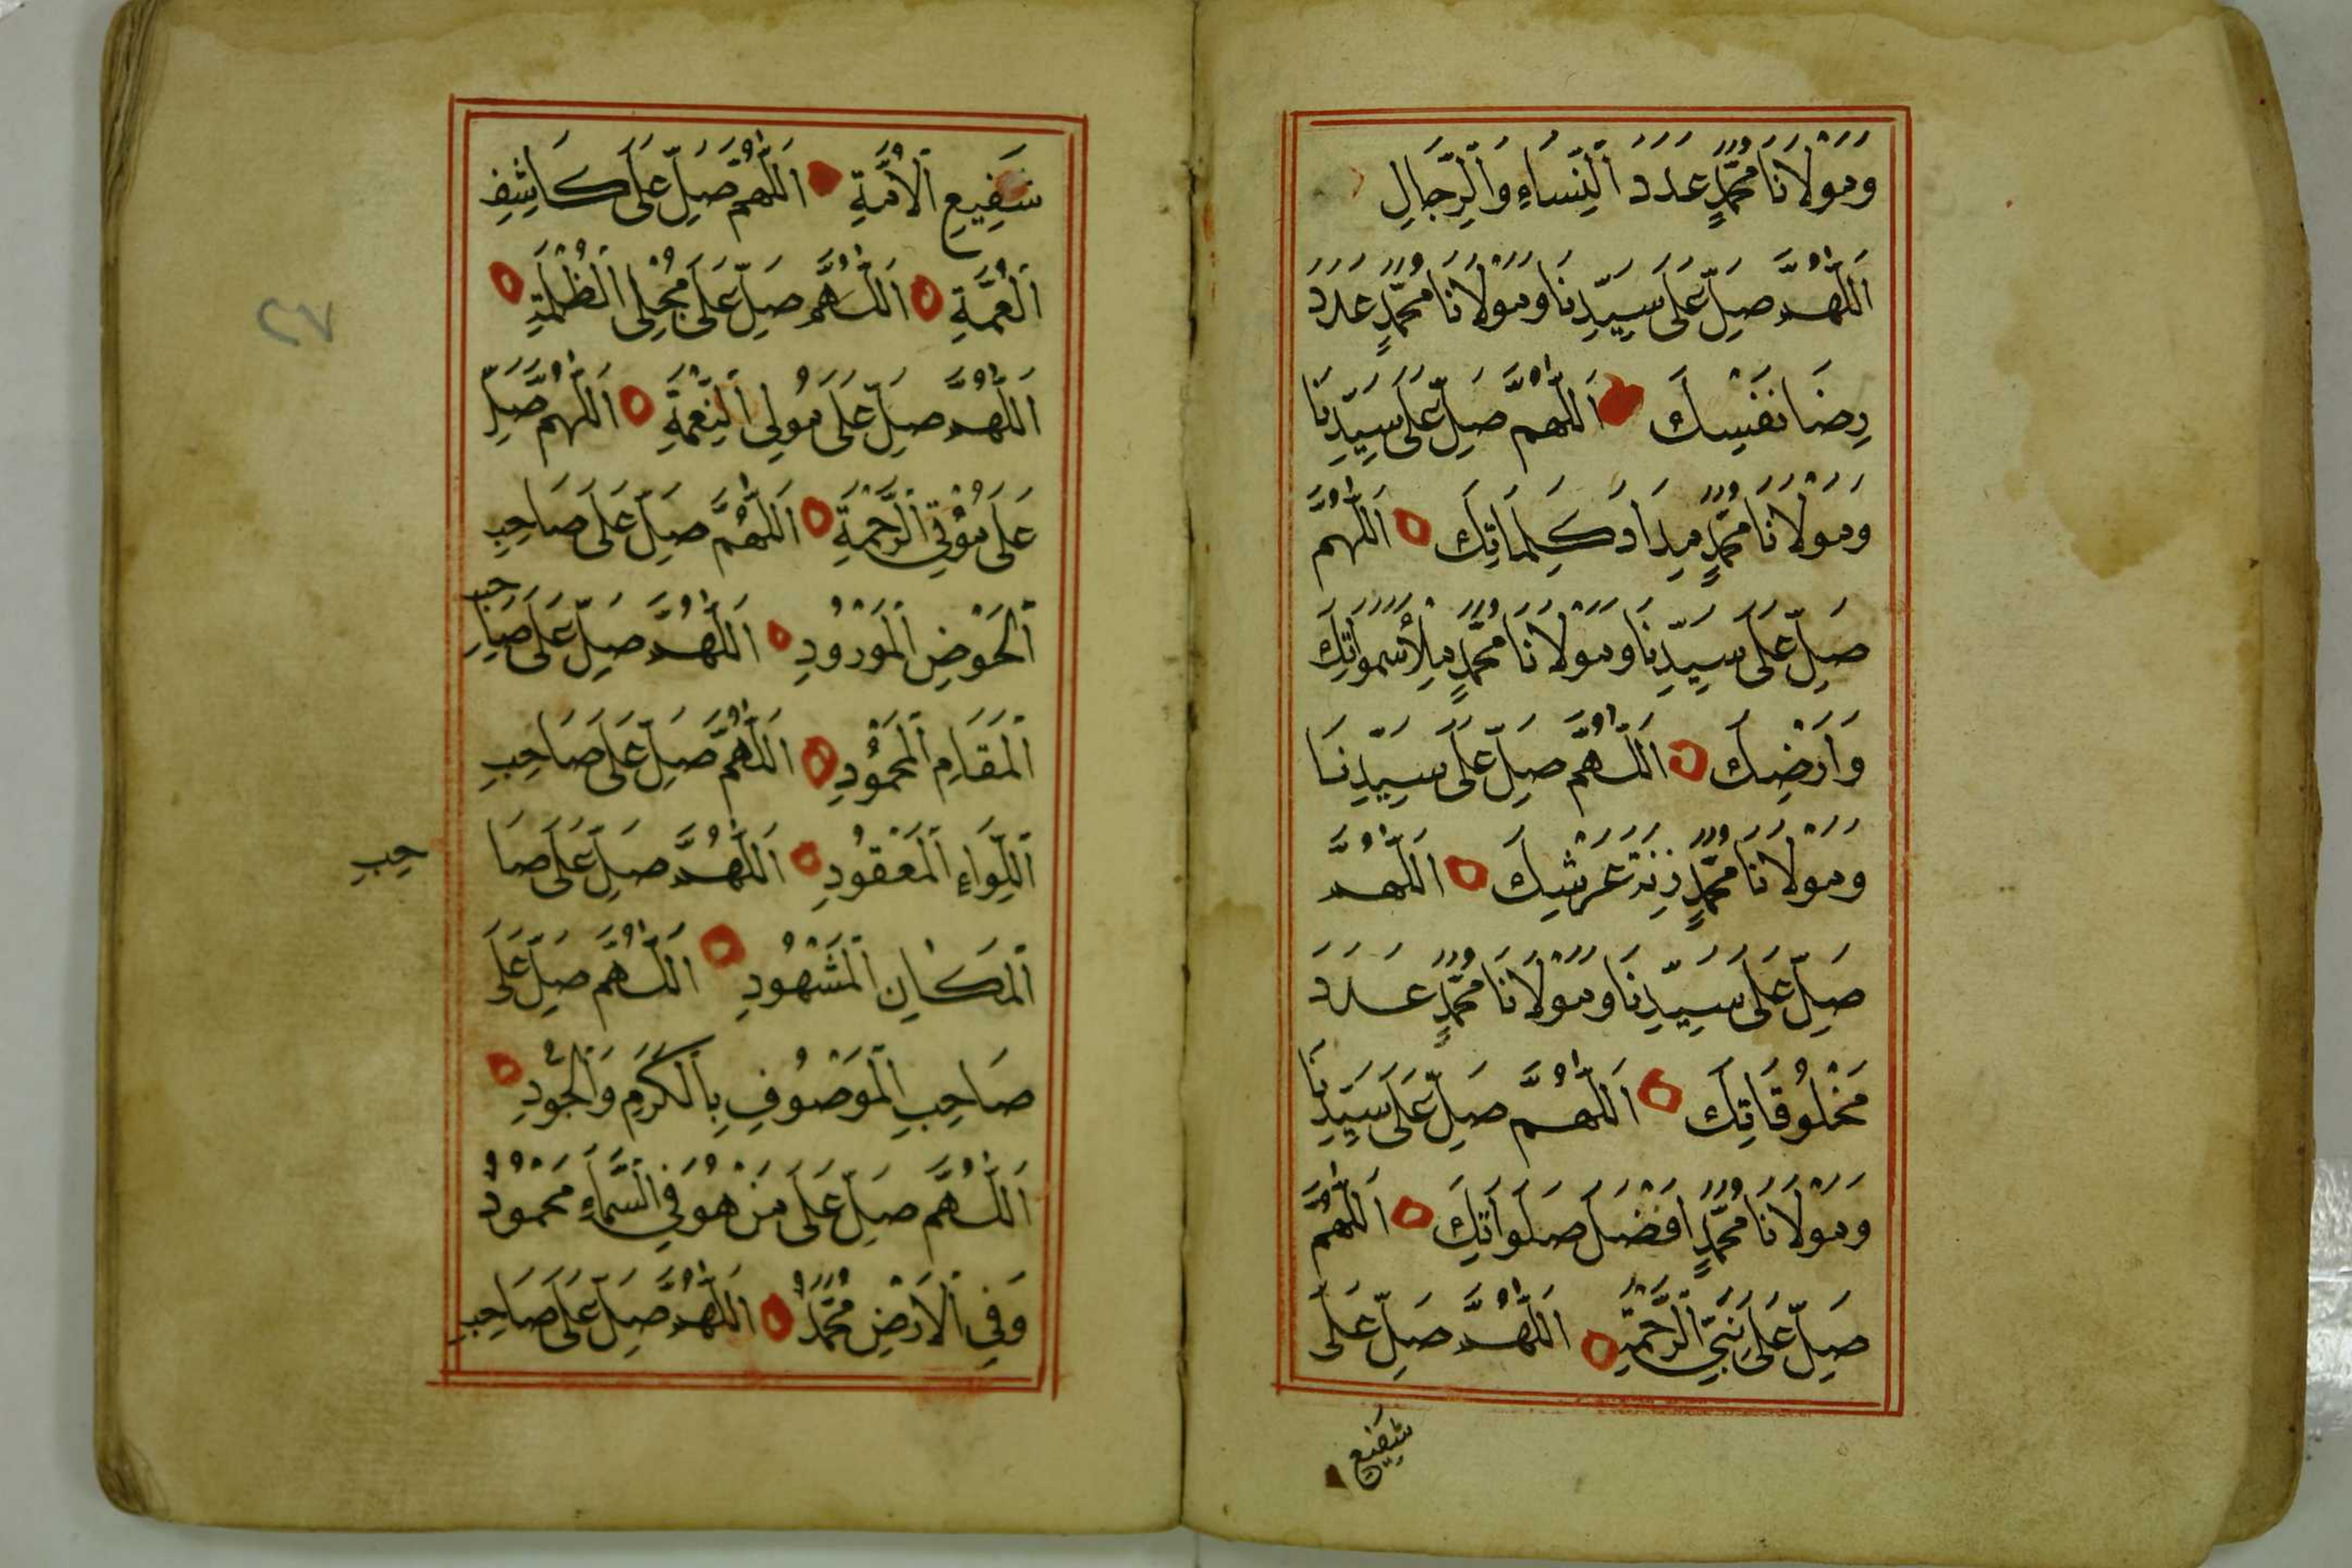 وَمَوْلَانَا مُحَمَّدٍ عَدَدَ النِّسَاءِ وَالرِّجَالِ
اَللّٰهُمَّ صَلِّ عَلَى سَيِّدِنَا وَمَوْلَانَا مُحَمَّدٍ عَدَدَ
رِضَا نَفْسِكَ اَللّٰهُمَّ صَلِّ عَلَى سَيِّدِنَا
وَمَوْلَانَا مُحَمَّدٍ مِدَادَ كَلِمَاتِكَ اَللّٰهُمَّ
صَلِّ عَلَى سَيِّدِنَا وَمَوْلَانَا مُحَمَّدٍ مِلْأَ سَمَوَاتِكَ
وَاَرْضِكَ اَللّٰهُمَّ صَلِّ عَلَى سَيِّدِنَا
وَمَوْلَانَا مُحَمَّدٍ زِنَةَ عَرْشِكَ اَللّٰهُمَّ
صَلِّ عَلَى سَيِّدِنَا وَمَوْلَانَا مُحَمَّدٍ عَدَدَ
مَخْلُوقَاتِكَ اَللّٰهُمَّ صَلِّ عَلَى سَيِّدِنَا
وَمَوْلَانَا مُحَمَّدٍ اَفْضَلَ صَلَوَاتِكَ اَللّٰهُمَّ
صَلِّ عَلَى نَبِيِّ الرَّحْمَةِ اَللّٰهُمَّ صَلِّ عَلَى
شَفِيعِ
شَفِيعِ الْاُمَّةِ اَللّٰهُمَّ صَلِّ عَلَى كَاشِفِ
الْغُمَّةِ اَللّٰهُمَّ صَلِّ عَلَى مُجْلِي الظُّلْمَةِ
اَللّٰهُمَّ صَلِّ عَلَى مُولِي النِّعْمَةِ اَللّٰهُمَّ صَلِّ
عَلَى مُؤْتِي الرَّحْمَةِ اَللّٰهُمَّ صَلِّ عَلَى صَاحِبِ
الْحَوْضِ الْمَوْرُودِ اَللّٰهُمَّ صَلِّ عَلَى صَاحِبِ
الْمَقَامِ الْمَحْمُودِ اَللّٰهُمَّ صَلِّ عَلَى صَاحِبِ
اللِّوَاءِ الْمَعْقُودِ اَللّٰهُمَّ صَلِّ عَلَى صَا
حِبِ
الْمَكَانِ الْمَشْهُودِ اَللّٰهُمَّ صَلِّ عَلَى
صَاحِبِ الْمَوْصُوفِ بِالْكَرَمِ وَالْجُودِ
اَللّٰهُمَّ صَلِّ عَلَى مَنْ هُوَ فِي السَّمَاءِ مَحْمُودٌ
وَفِي الْاَرْضِ مُحَمَّدٌ اَللّٰهُمَّ صَلِّ عَلَى صَاحِبِ